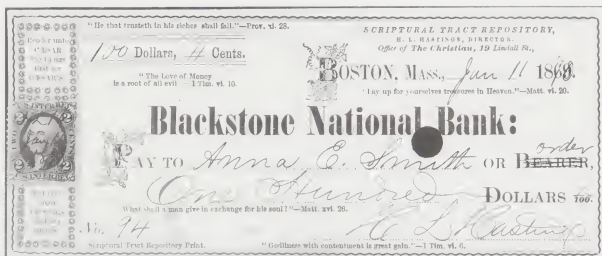 "He that trusteth in his riches shall fall."—Prov. xi. 28.
SCRIPTURAL TRACT REPOSITORY,
H. L. HASTINGS, DIRECTOR.
Office of The Christian, 19 Lindall St.,
Render unto
CÆSAR
CÆSAR'S
100 Dollars, 4 Cents.
"The Love of Money
is a root of all evil — 1 Tim. vi. 10.
BOSTON, MASS., Jan 11 1869.
"Lay up for yourselves treasures in Heaven."—Matt. vi. 20.
Blackstone National Bank:
PAY TO Anna E. Smith OR BEARER, order
One Hundred DOLLARS 100.
What shall a man give in exchange for his soul?"—Matt. xvi. 26.
No. 94
H L Hastings
Scriptural Tract Repository Print.
"Godliness with contentment is great gain."—1 Tim. vi. 6.